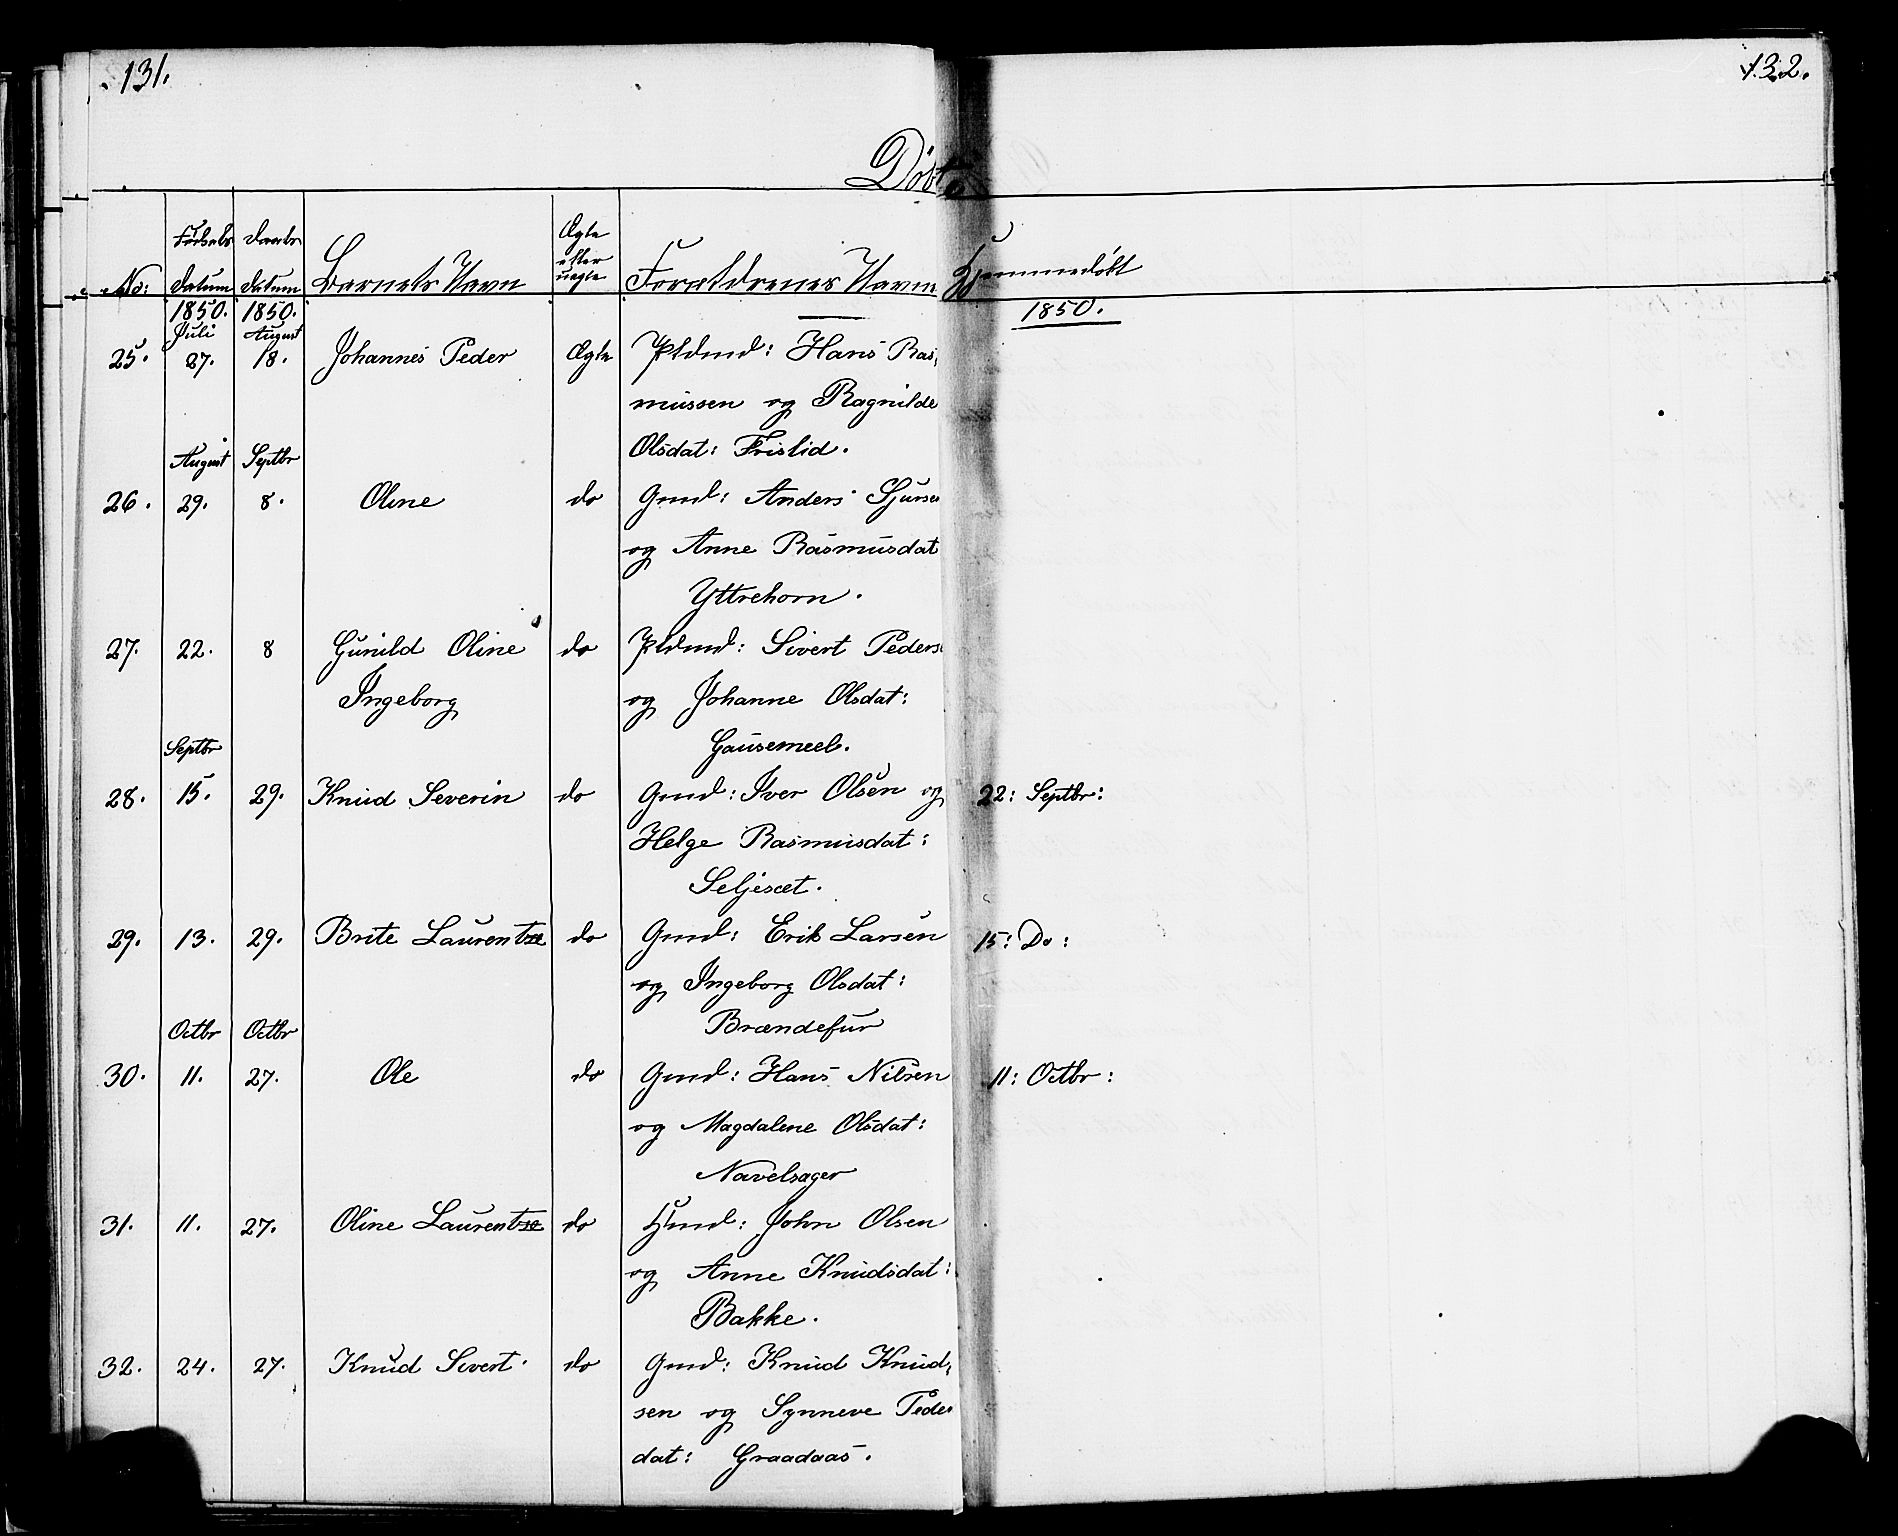 131.
132.
Døbte
No:
Fødsels Datum
Daabs Datum
Barnets Navn
Ægte eller uægte
Forældrenes Navne
Hjemmedøbt
1850. 1850. 1850.
Juli August
25. 27. 18. Johannes Peder Ægte Pldmd: Hans Ras,
mussen og Ragnilde
Olsdat: Frislid.
August Septbr
26. 29. 8. Oline do Gmd: Anders Sjurse
og Anne Rasmusdat
Yttrehorn.
27. 22. 8 Gunild Oline do Pldmd: Sivert Peders
Ingeborg og Johanne Olsdat:
Gausemeel.
Septbr
28. 15. 29. Knud Severin do Gmd: Iver Olsen og 22: Septbr:
Helge Rasmusdat:
Seljesæt.
29. 13. 29. Brite Laurentze do Gmd: Erik Larsen 15: Do:
og Ingeborg Olsdat:
Brændefur
Octbr Octbr
30. 11. 27. Ole do Gmd: Hans Nilsen 11: Octbr:
og Magdalene Olsdat:
Navelsager
31. 11. 27. Oline Laurentze do Hmd: John Olsen
og Anne Knudsdat:
Bakke.
32. 24. 27. Knud Sivert. do Gmd: Knud Knud,
sen og Synneve Peder
dat: Graadaas.